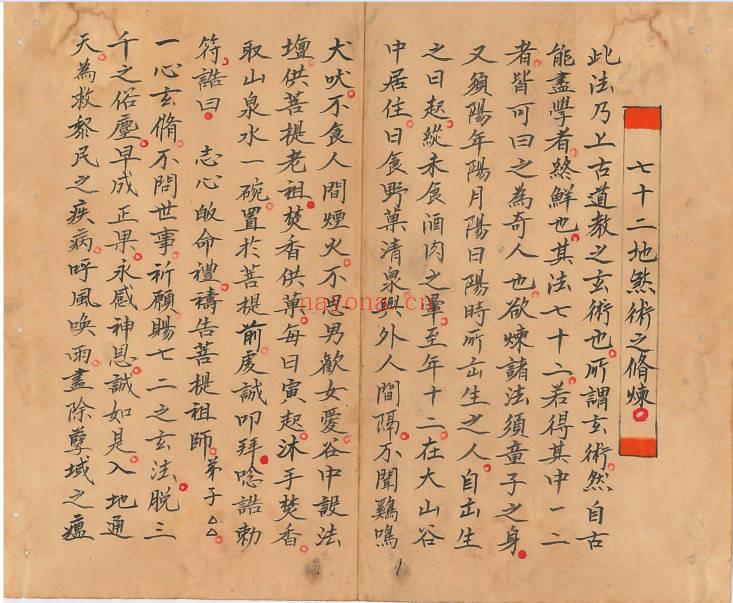 七十二地煞術之脩煉
此法乃上古道教之玄術也所謂玄術然自古
能盡學者終鮮也其法七十二若得其中一二
者皆可曰之為奇人也欲煉諸法須童子之身
又須陽年陽月陽日陽時所出生之人自出生
之日起縱未食酒肉之葷至年十二在大山谷
中居住日食野菓清泉與外人間隔不聞鷄鳴
犬吠不食人間煙火不思男歡女愛谷中設法
壇供菩提老祖焚香供菓每日寅起沐手焚香
取山泉水一碗置於菩提前虔誠叩拜唸誥勅
符誥曰 志心皈命禮禱告菩提祖師弟子△△
一心玄脩不問世事祈願賜七二之玄法脫三
千之俗塵早成正果永感神恩誠如是入地通
天為救黎民之疾病呼風喚雨盡除孽域之瘟
1
nayona.cn